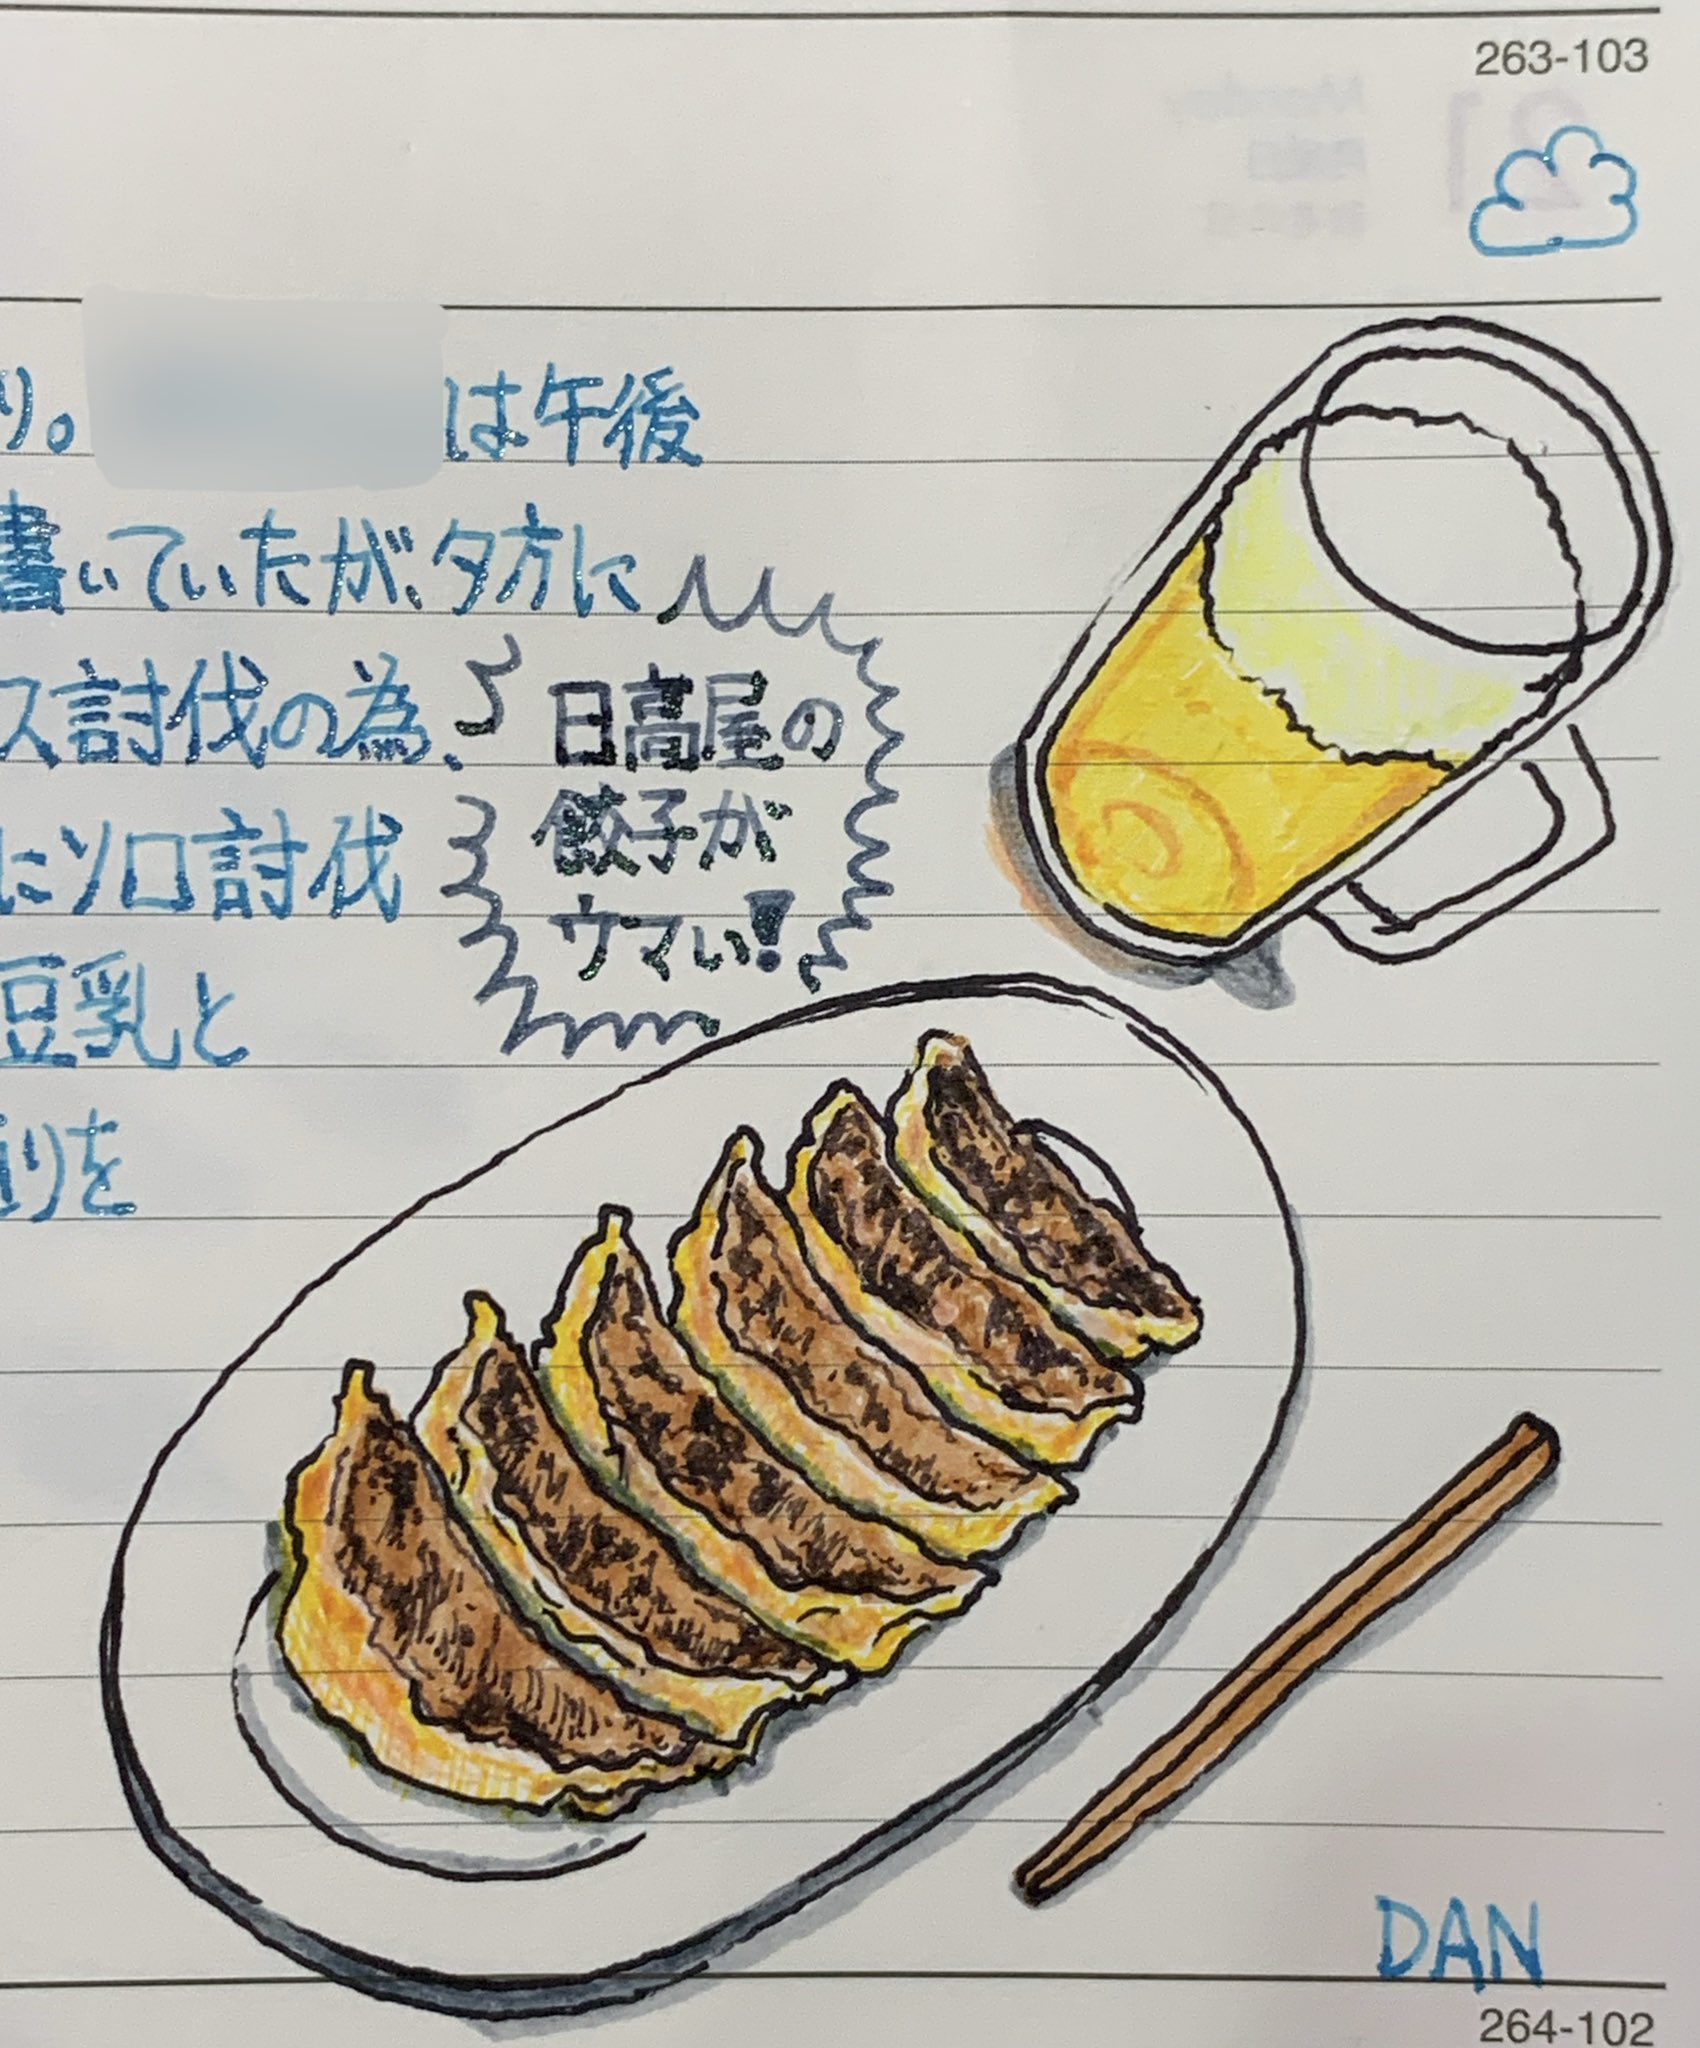 263-103
り。
は午後
書いていたが、夕方に
ス討伐の為、
にソロ討伐
豆乳と
りを
日高屋の
餃子が
ウマい!
DAN
264-102